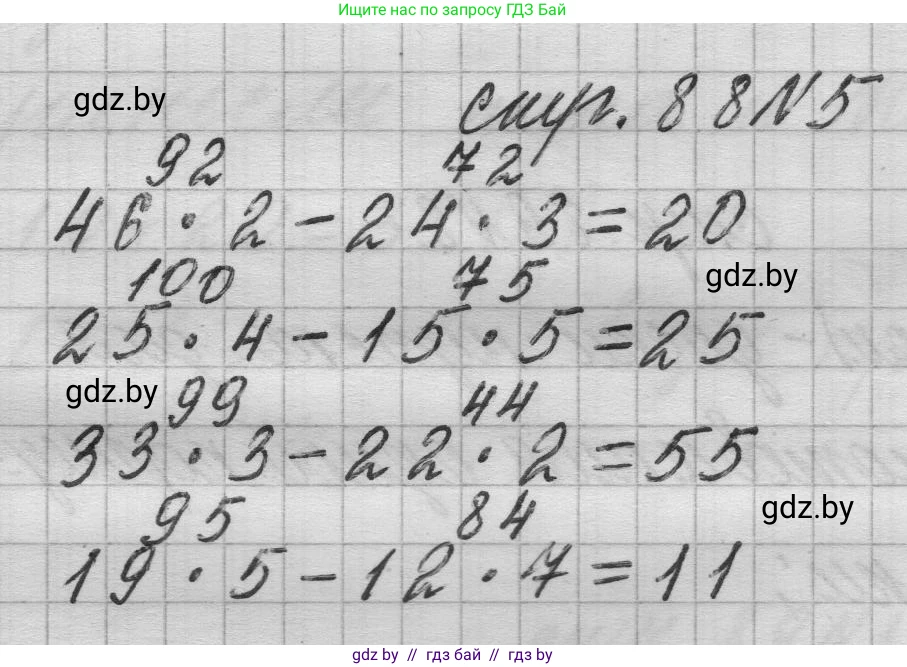 Ищите нас по запросу ГДЗ Бай
gdz.by
стр. 88 N 5
92 72
46 · 2 - 24 · 3 = 20
100 75
gdz.by
25 · 4 - 15 · 5 = 25
gdz.by
99 44
33 · 3 - 22 · 2 = 55
95 84
gdz.by
19 · 5 - 12 · 7 = 11
gdz by // гдз бай // gdz by